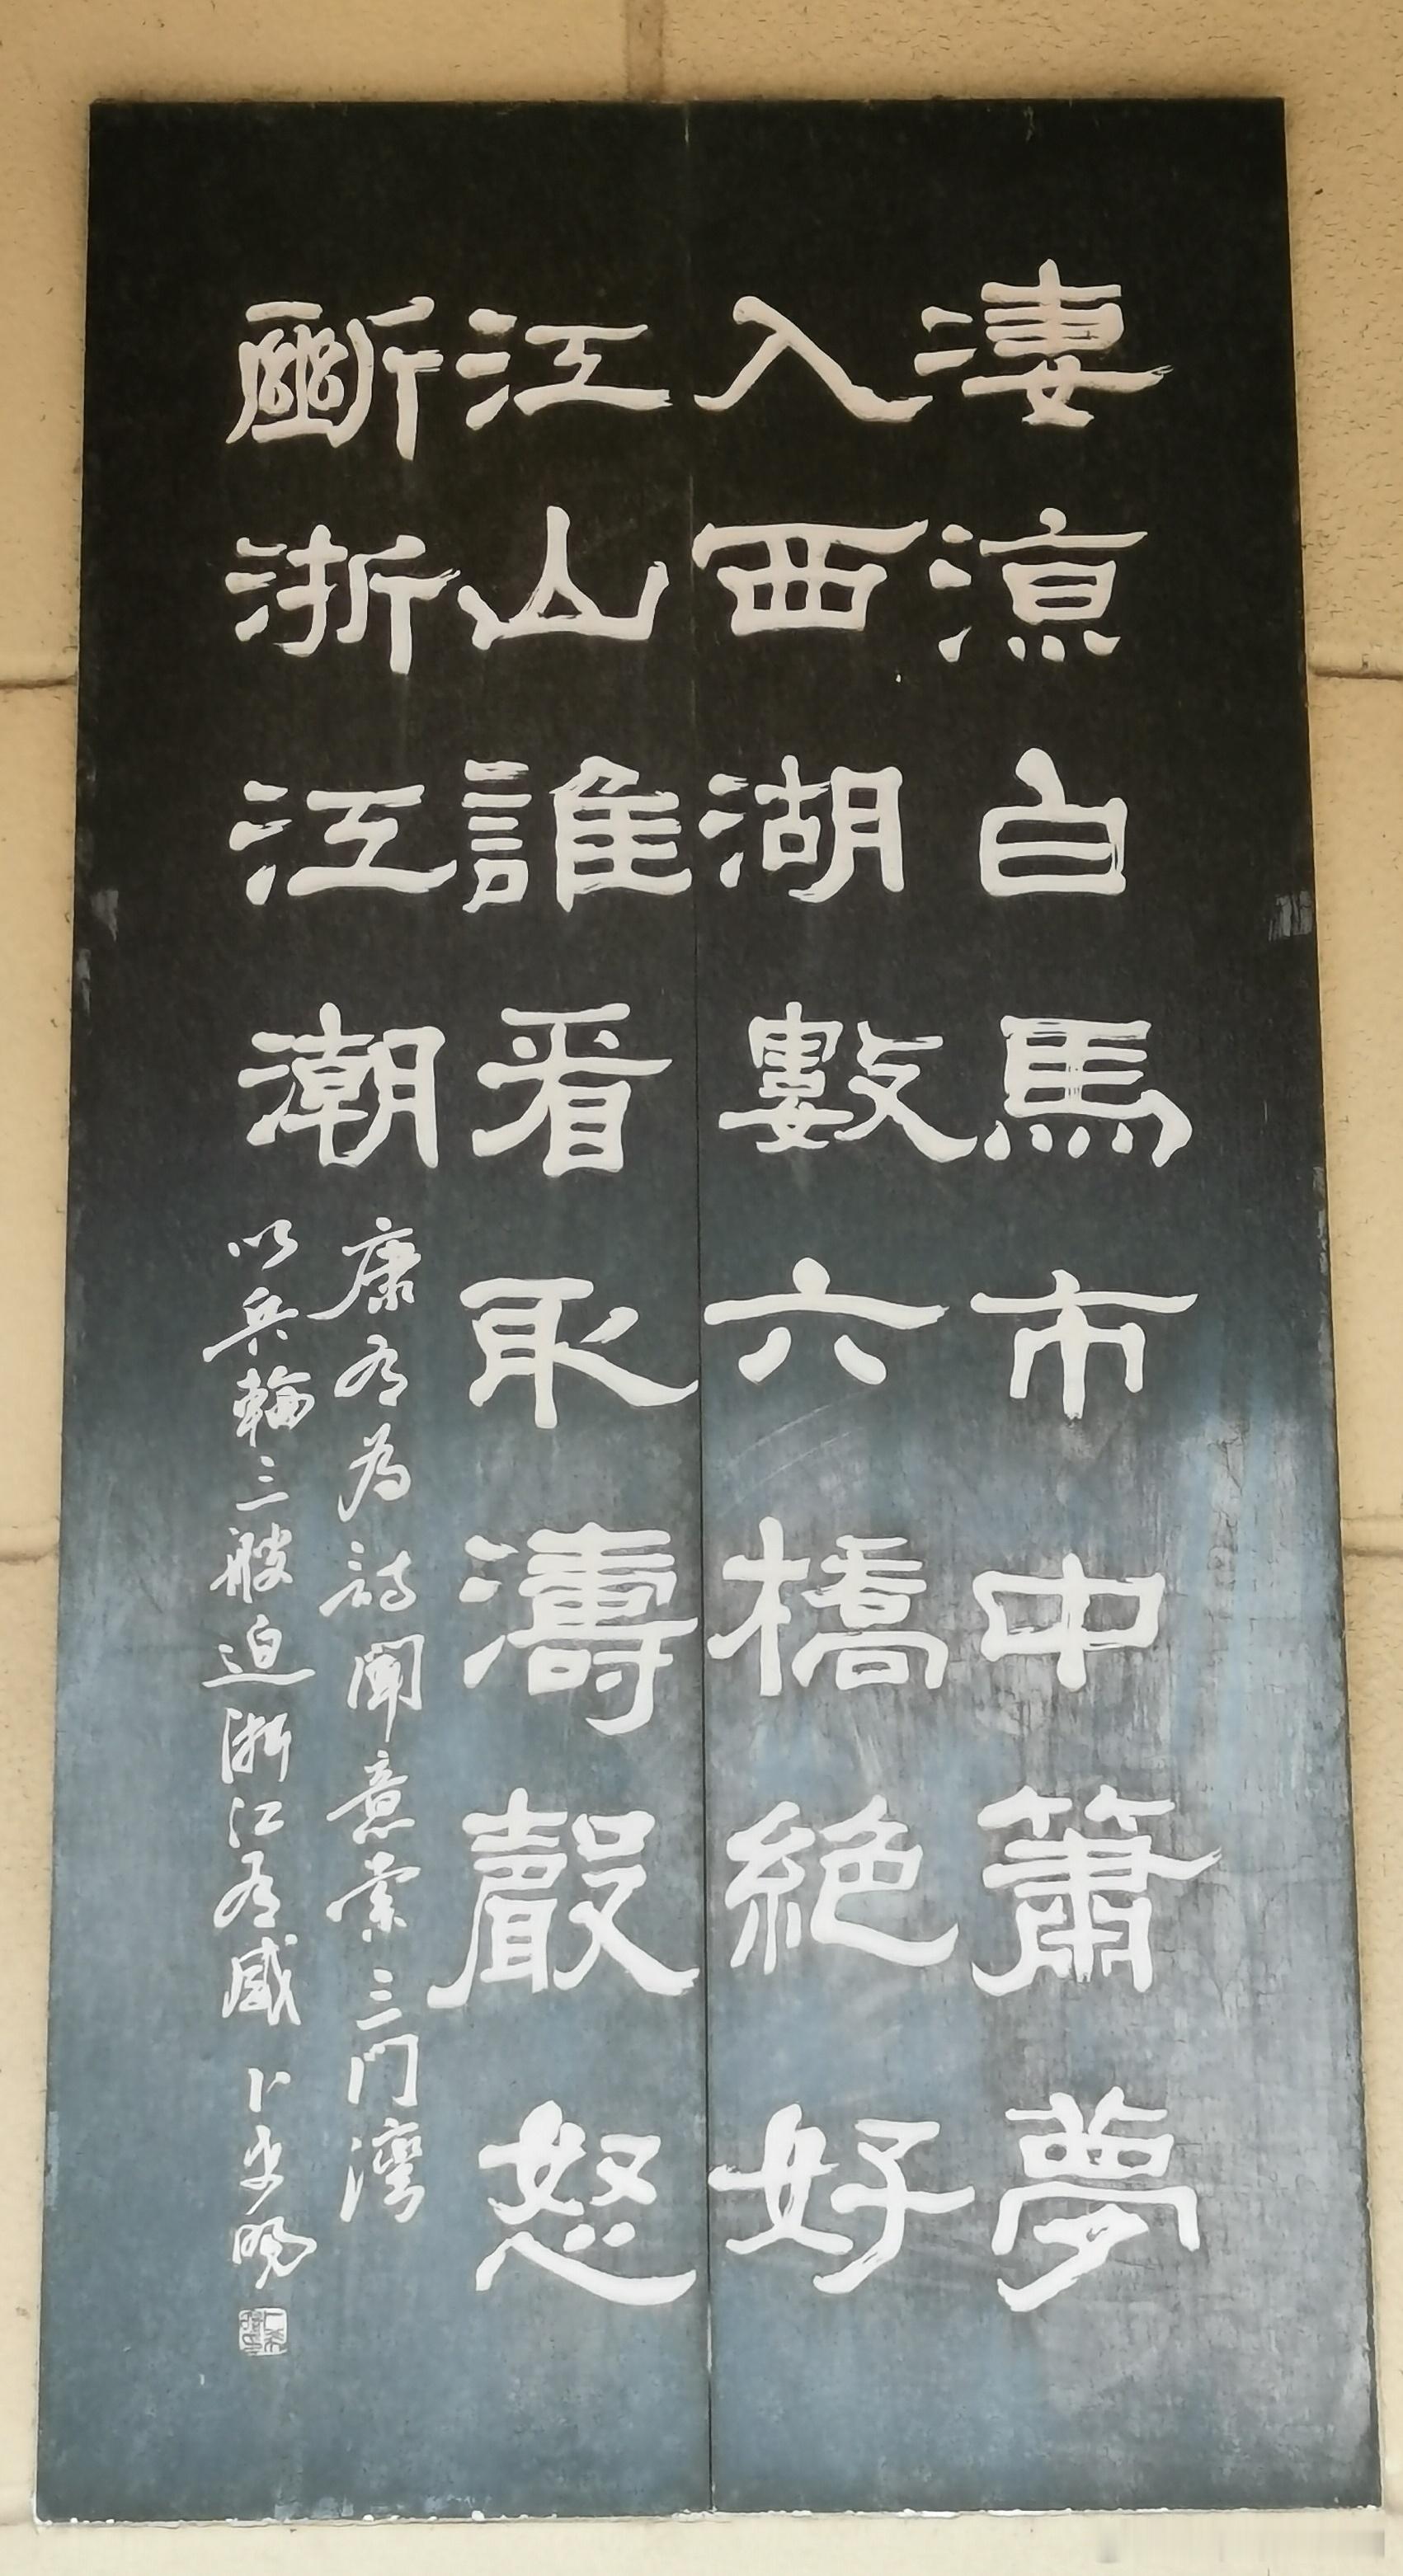 淒涼白馬市中簫夢
入西湖數六橋絕好
江山誰看取濤聲怒
斷浙江潮
康有為詩聞意索三門灣
以兵輪三艘迫浙江有感 卜少陽